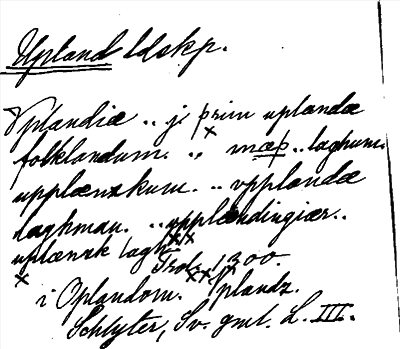 Upland ldskp.
Vplandiæ .. j þrim uplandæ
folklandum. .. mæþ .. laghum.
upplænzkum. .. vpplandæ
laghman. .. upplændingiær..
uplænzk lagh
1300.
i Oplandom. Vplandz.
Schlyter, Sv. gml. L. III.